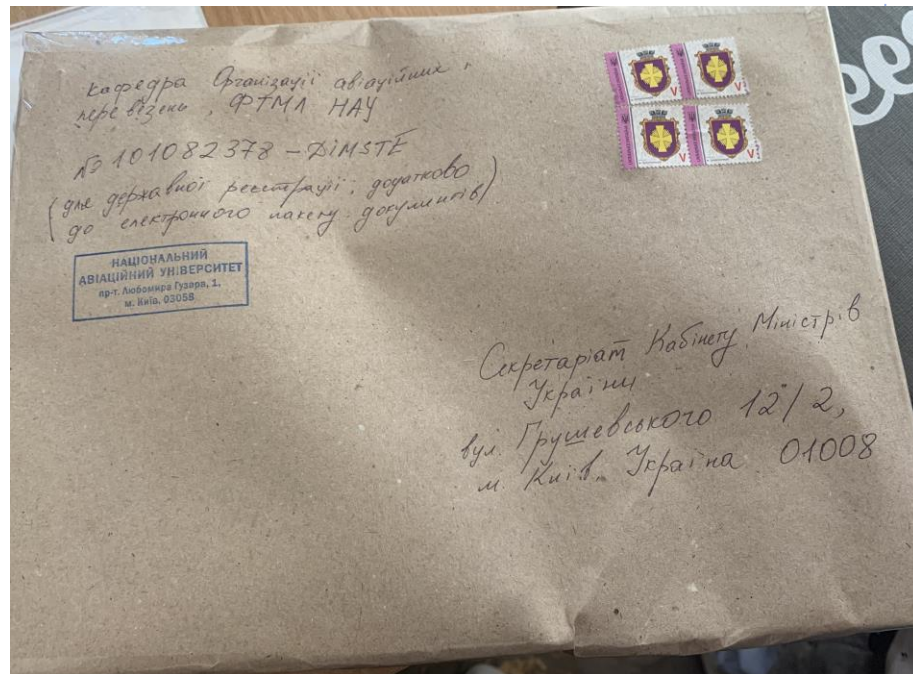 Кафедра Організації авіаційних
перевезень ФТМЛ НАУ
№ 101082378 – DIMSTE
(для державної реєстрації, додатково
до електронного пакету документів)
НАЦІОНАЛЬНИЙ
АВІАЦІЙНИЙ УНІВЕРСИТЕТ
пр-т. Любомира Гузара, 1,
м. Київ, 03058
V V
V V
Секретаріат Кабінету Міністрів
України
вул. Грушевського 12/2,
м. Київ, Україна 01008